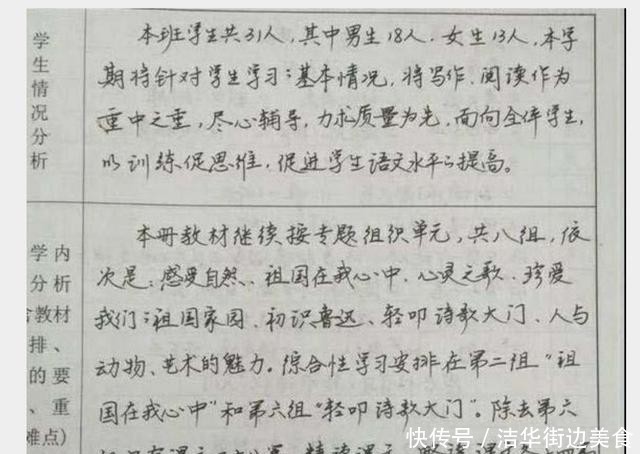 学生情况分析
本班学生共31人，其中男生18人，女生13人，本学
期将针对学生学习的基本情况，将写作、阅读作为
重中之重，尽心辅导，力求质量为先，面向全体学生，
以训练促思维，促进学生语文水平的提高。
学内
分析
教材
排、
的要
、重
难点)
本册教材继续按专题组织单元，共八组，依
次是：感受自然、祖国在我心中、心灵之歌、珍爱
我们的祖国家园、初识鲁迅、轻叩诗歌大门、人与
动物、艺术的魅力。综合性学习安排在第二组“祖
国在我心中”和第六组“轻叩诗歌大门”。除去第六
快传号／洁华街边美食